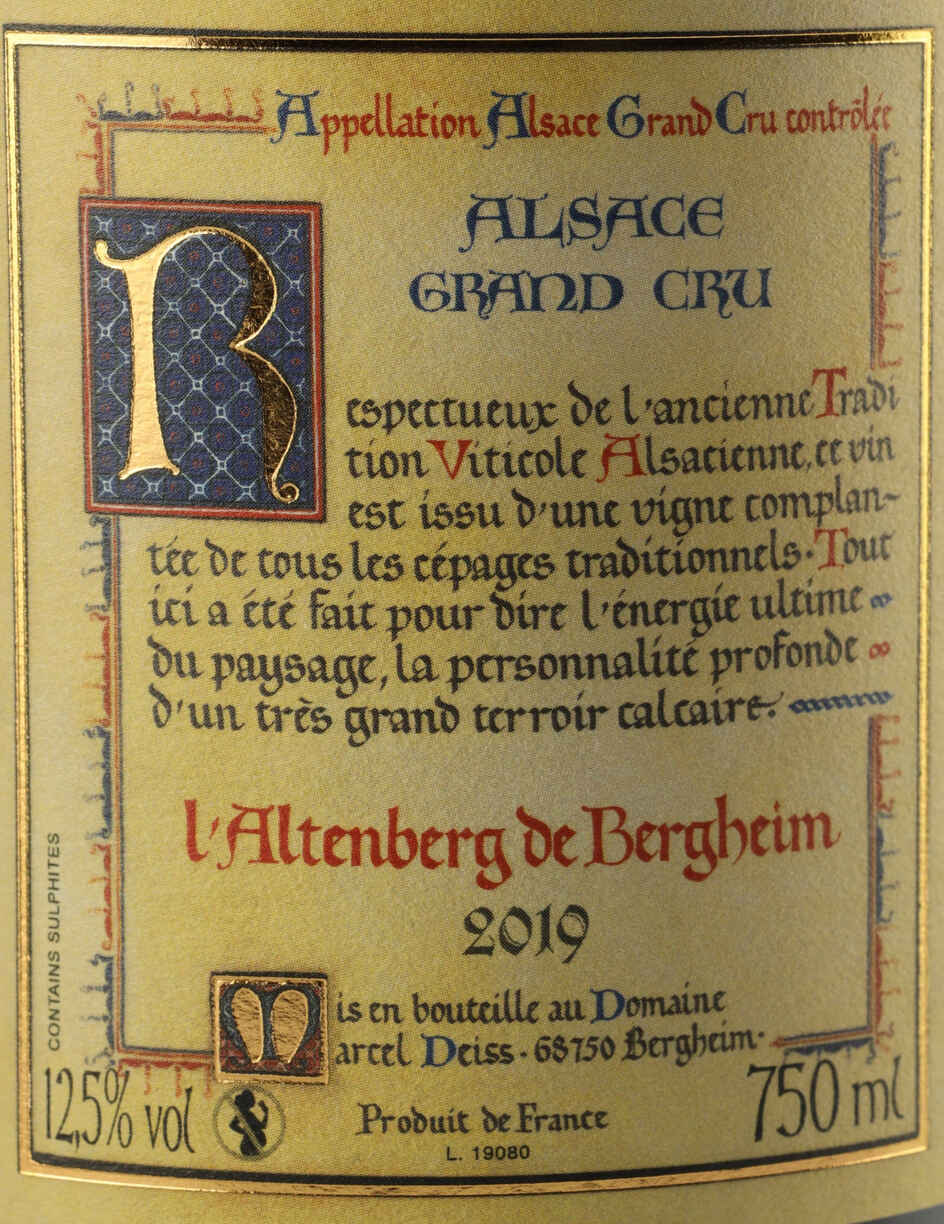 Appellation Alsace Grand Cru contrôlée
ALSACE
GRAND CRU
Respectueux de l'ancienne Tradi
tion Viticole Alsacienne, ce vin
est issu d'une vigne complan-
tée de tous les cépages traditionnels. Tout
ici a été fait pour dire l'énergie ultime
du paysage, la personnalité profonde
d'un très grand terroir calcaire.
l'Altenberg de Bergheim
2019
Mis en bouteille au Domaine
Marcel Deiss - 68750 Bergheim-
CONTAINS SULPHITES
12,5% vol
Produit de France
750 ml
L. 19080